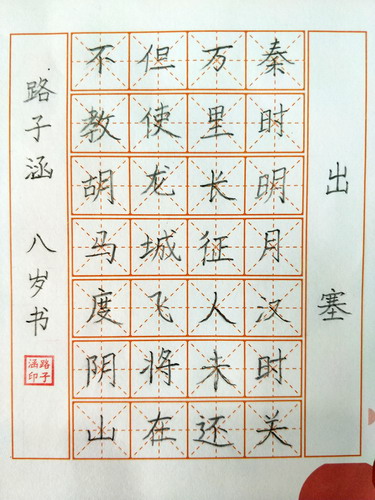 出塞
秦时明月汉时关
万里长征人未还
但使龙城飞将在
不教胡马度阴山
路子涵 八岁书
路子涵印